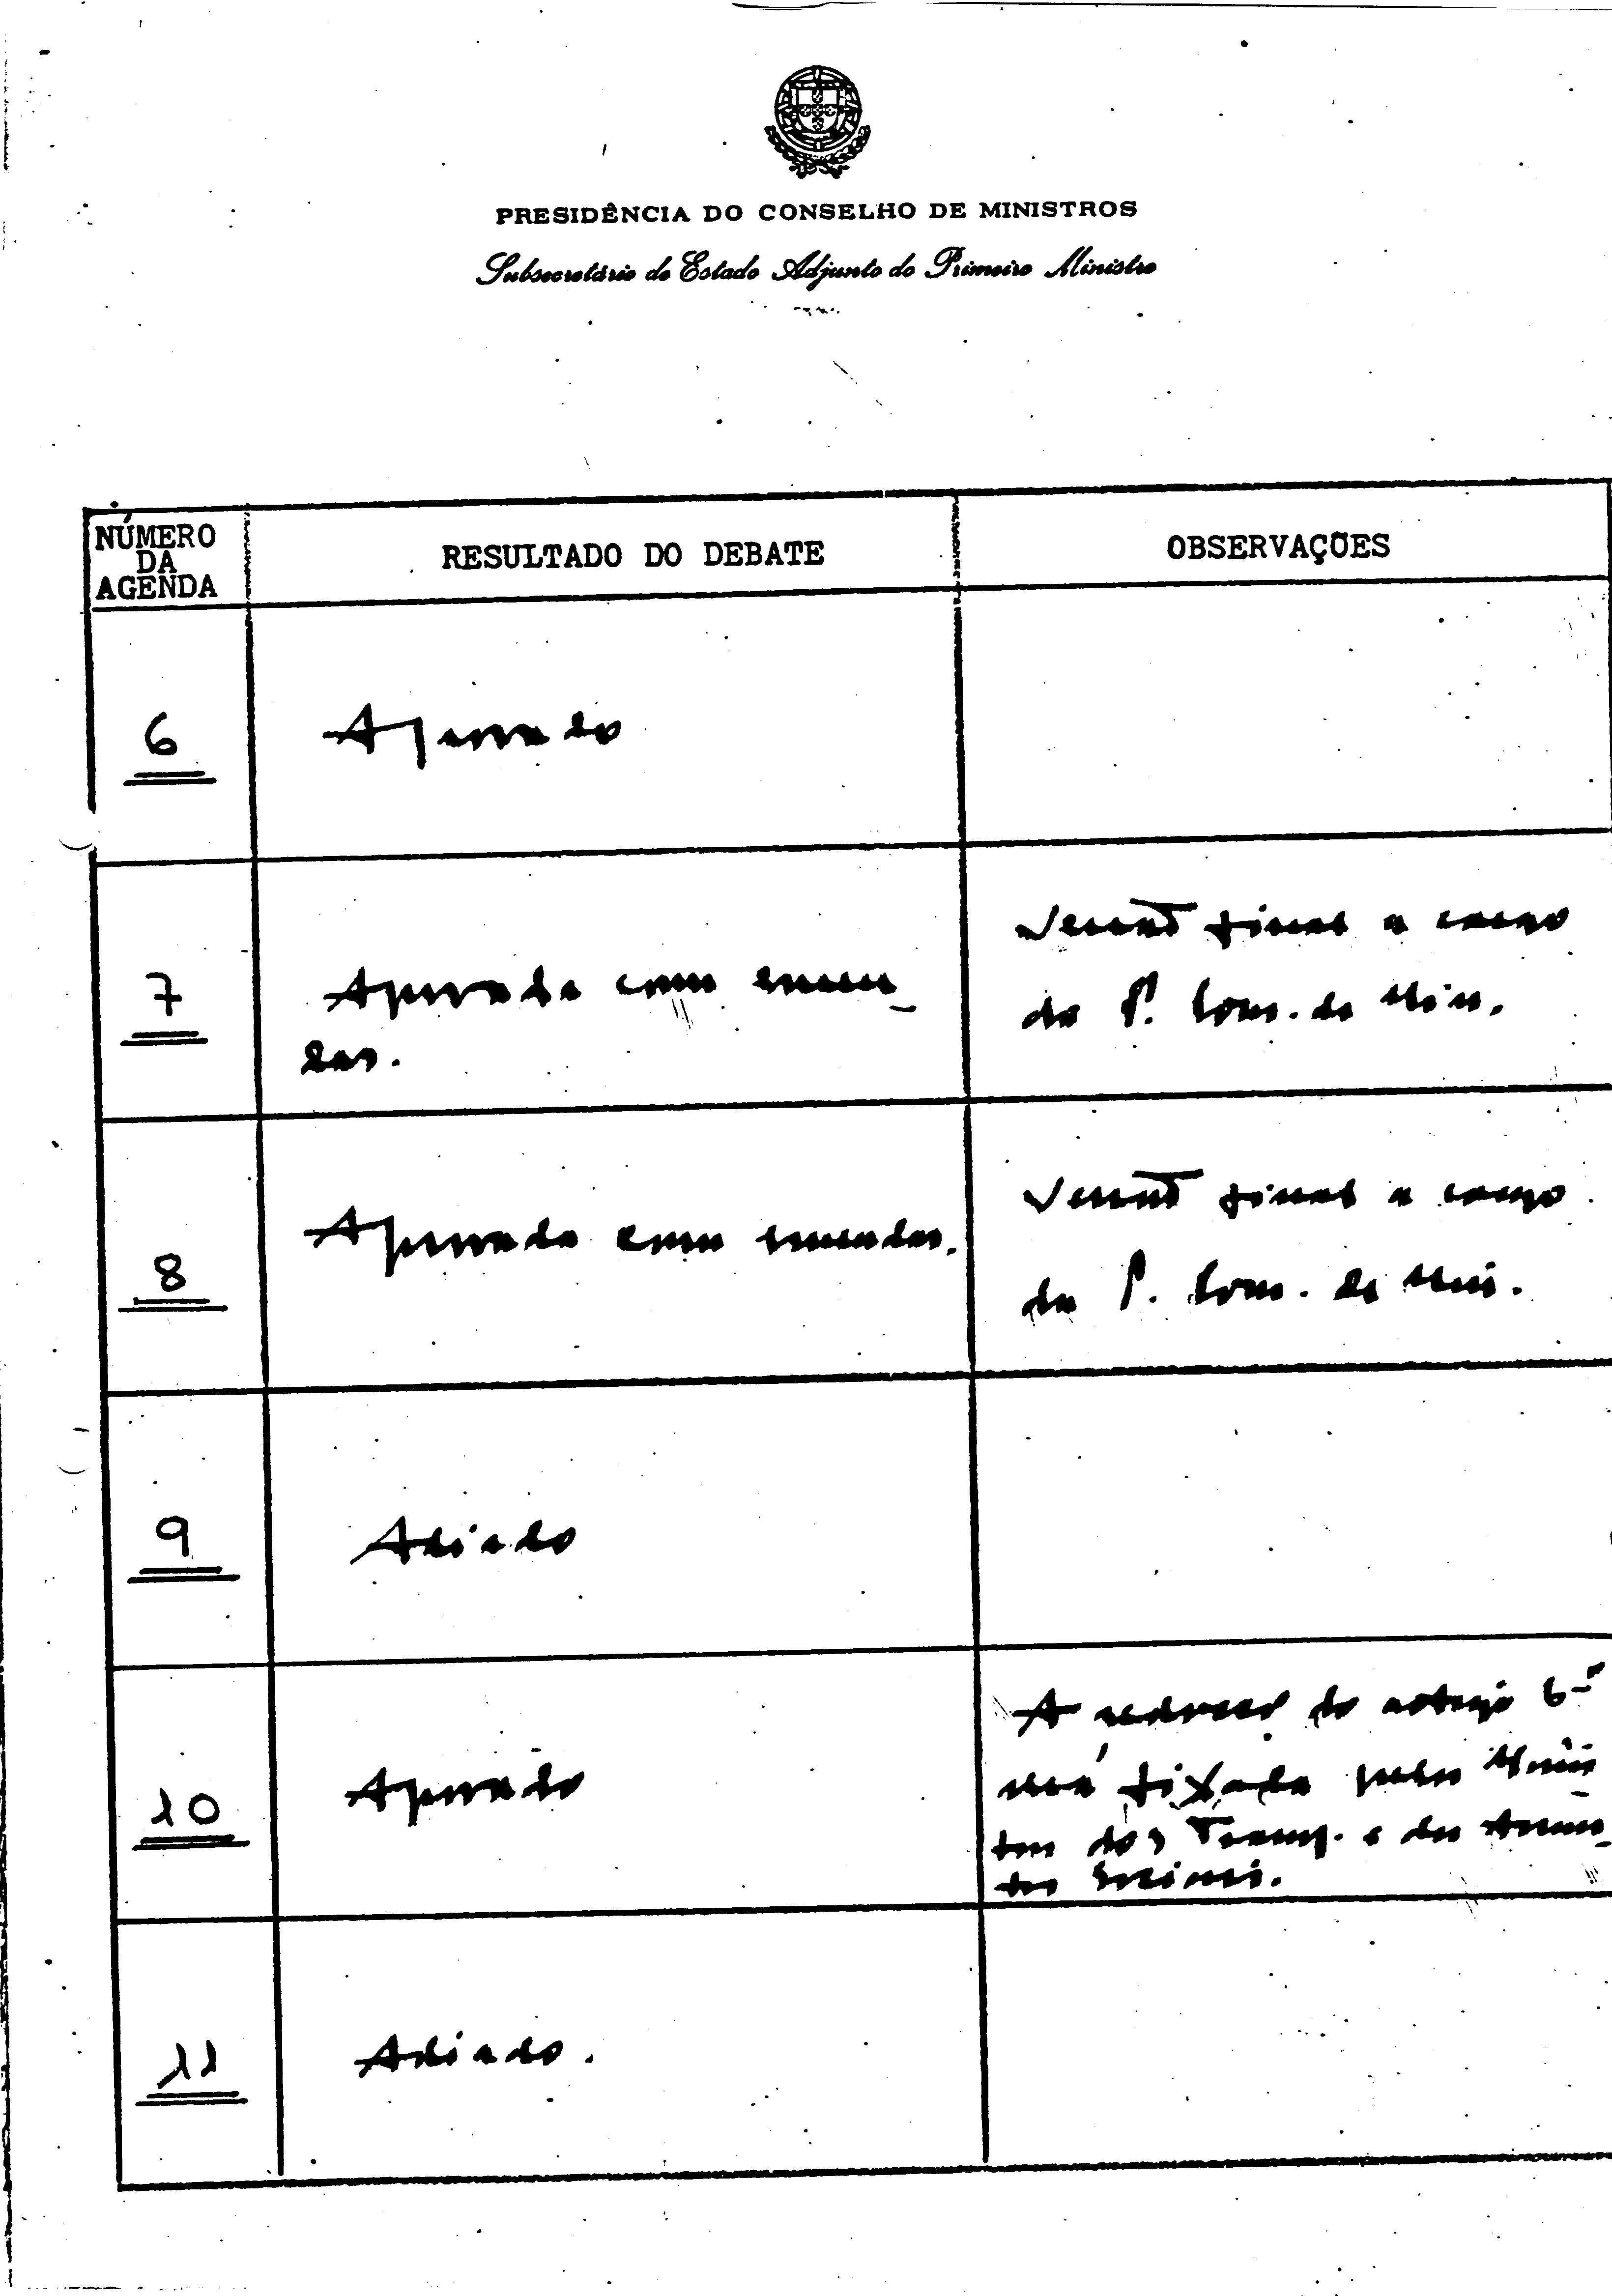 PRESIDÊNCIA DO CONSELHO DE MINISTROS
Subsecretário de Estado Adjunto do Primeiro Ministro
NÚMERO
DA
AGENDA
RESULTADO DO DEBATE
OBSERVAÇÕES
6
Aprovado
7
Aprovado com emen-
das.
Versão final a cargo
da P. Cons. de Min.
8
Aprovado com emendas.
Versão final a cargo
da P. Cons. de Min.
9
Adiado
10
Aprovado
A redacção do artigo 6º
será fixada pelos Minis
tros dos Transp. e dos Assun-
tos Sociais.
11
Adiado.